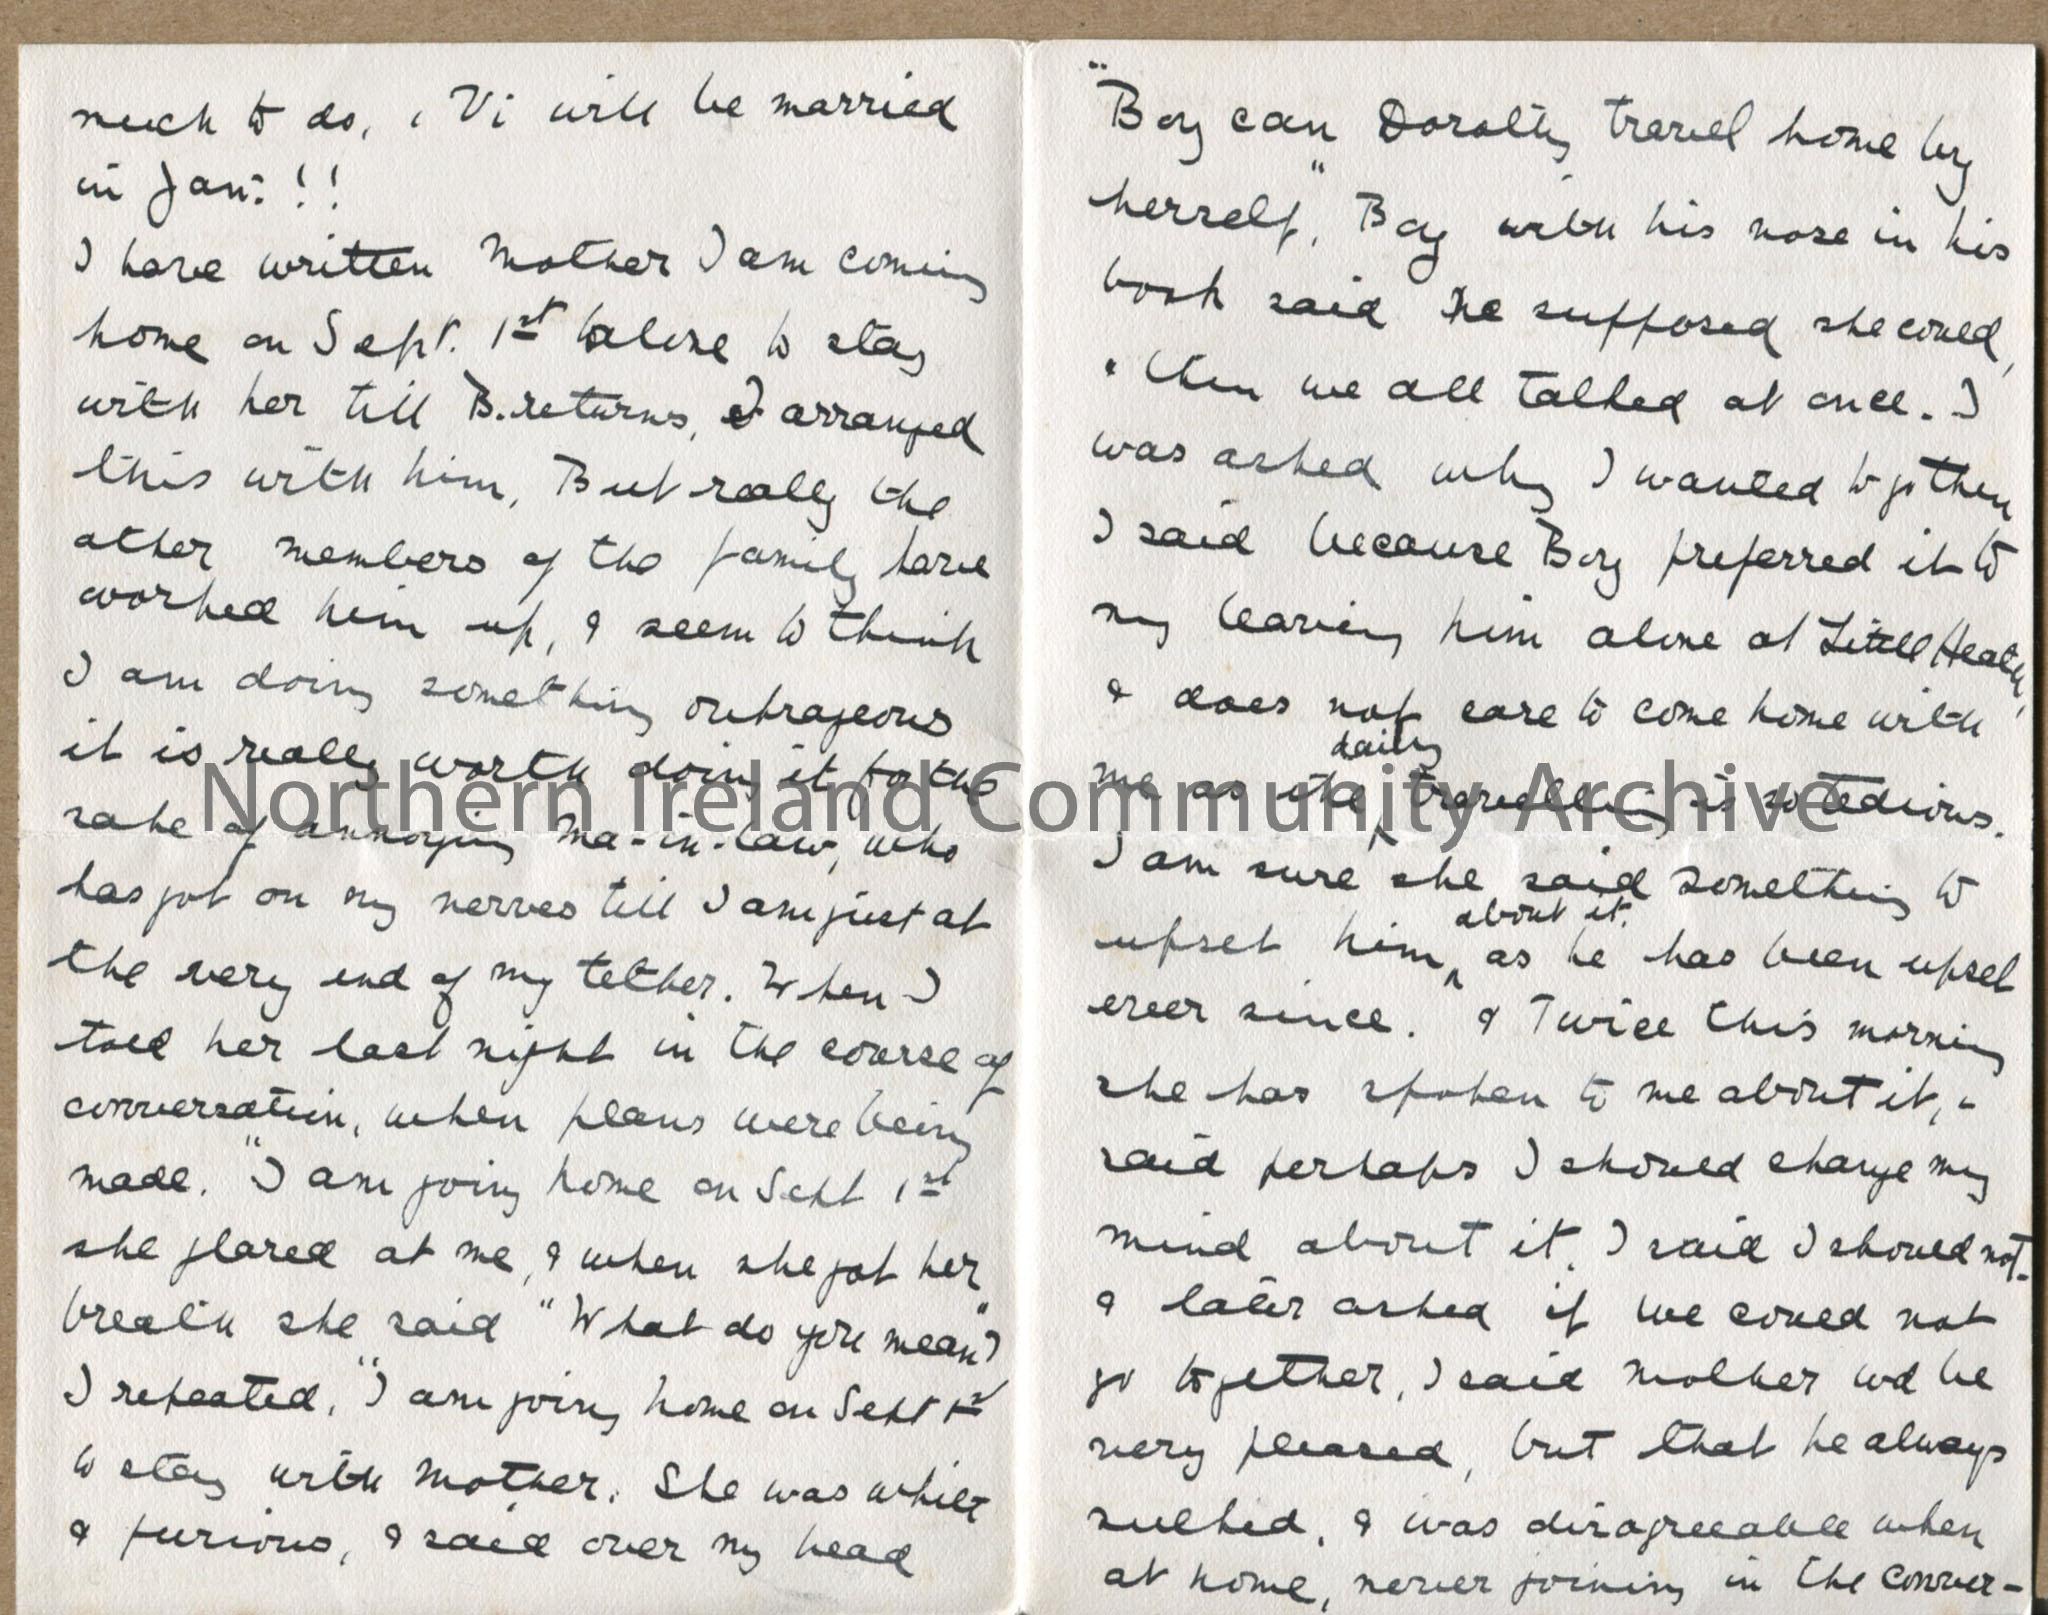 much to do, & Vi will be married
in Jan: !!
I have written Mother I am coming
home on Sept. 1st alone to stay
with her till B. returns, I arranged
this with him, But really the
other members of the family have
worked him up, & seem to think
I am doing something outrageous
it is really worth doing it for the
sake of annoying Ma-in-law, who
has got on my nerves till I am just at
the very end of my tether. When I
told her last night in the course of
conversation, when plans were being
made. "I am going home on Sept 1st
she glared at me, & when she got her
breath she said "What do you mean"?
I repeated, "I am going home on Sept 1st
to stay with Mother. She was white
& furious, & said over my head
"Boy can Dorothy travel home by
herself," Boy with his nose in his
book said he supposed she could,
& then we all talked at once. I
was asked why I wanted to go then
I said because Boy preferred it to
my leaving him alone at Little Heath,
& does not care to come home with
me as the daily travelling is so tedious.
I am sure she said something to
upset him about it, as he has been upset
ever since. & Twice this morning
she has spoken to me about it, &
said perhaps I should change my
mind about it. I said I should not.
& later asked if we could not
go together, I said Mother wd be
very pleased, but that he always
sulked, & was disagreeable when
at home, never joining in the conver-
Northern Ireland Community Archive